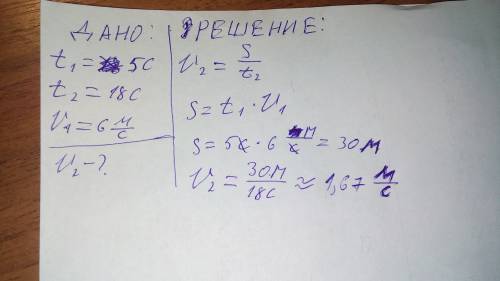 ДАНО:
t₁ = 5с
t₂ = 18с
V₁ = 6 м/с
V₂ - ?
РЕШЕНИЕ:
V₂ = S/t₂
S = t₁ · V₁
S = 5с · 6 м/с = 30м
V₂ = 30м/18с ≈ 1,67 м/с